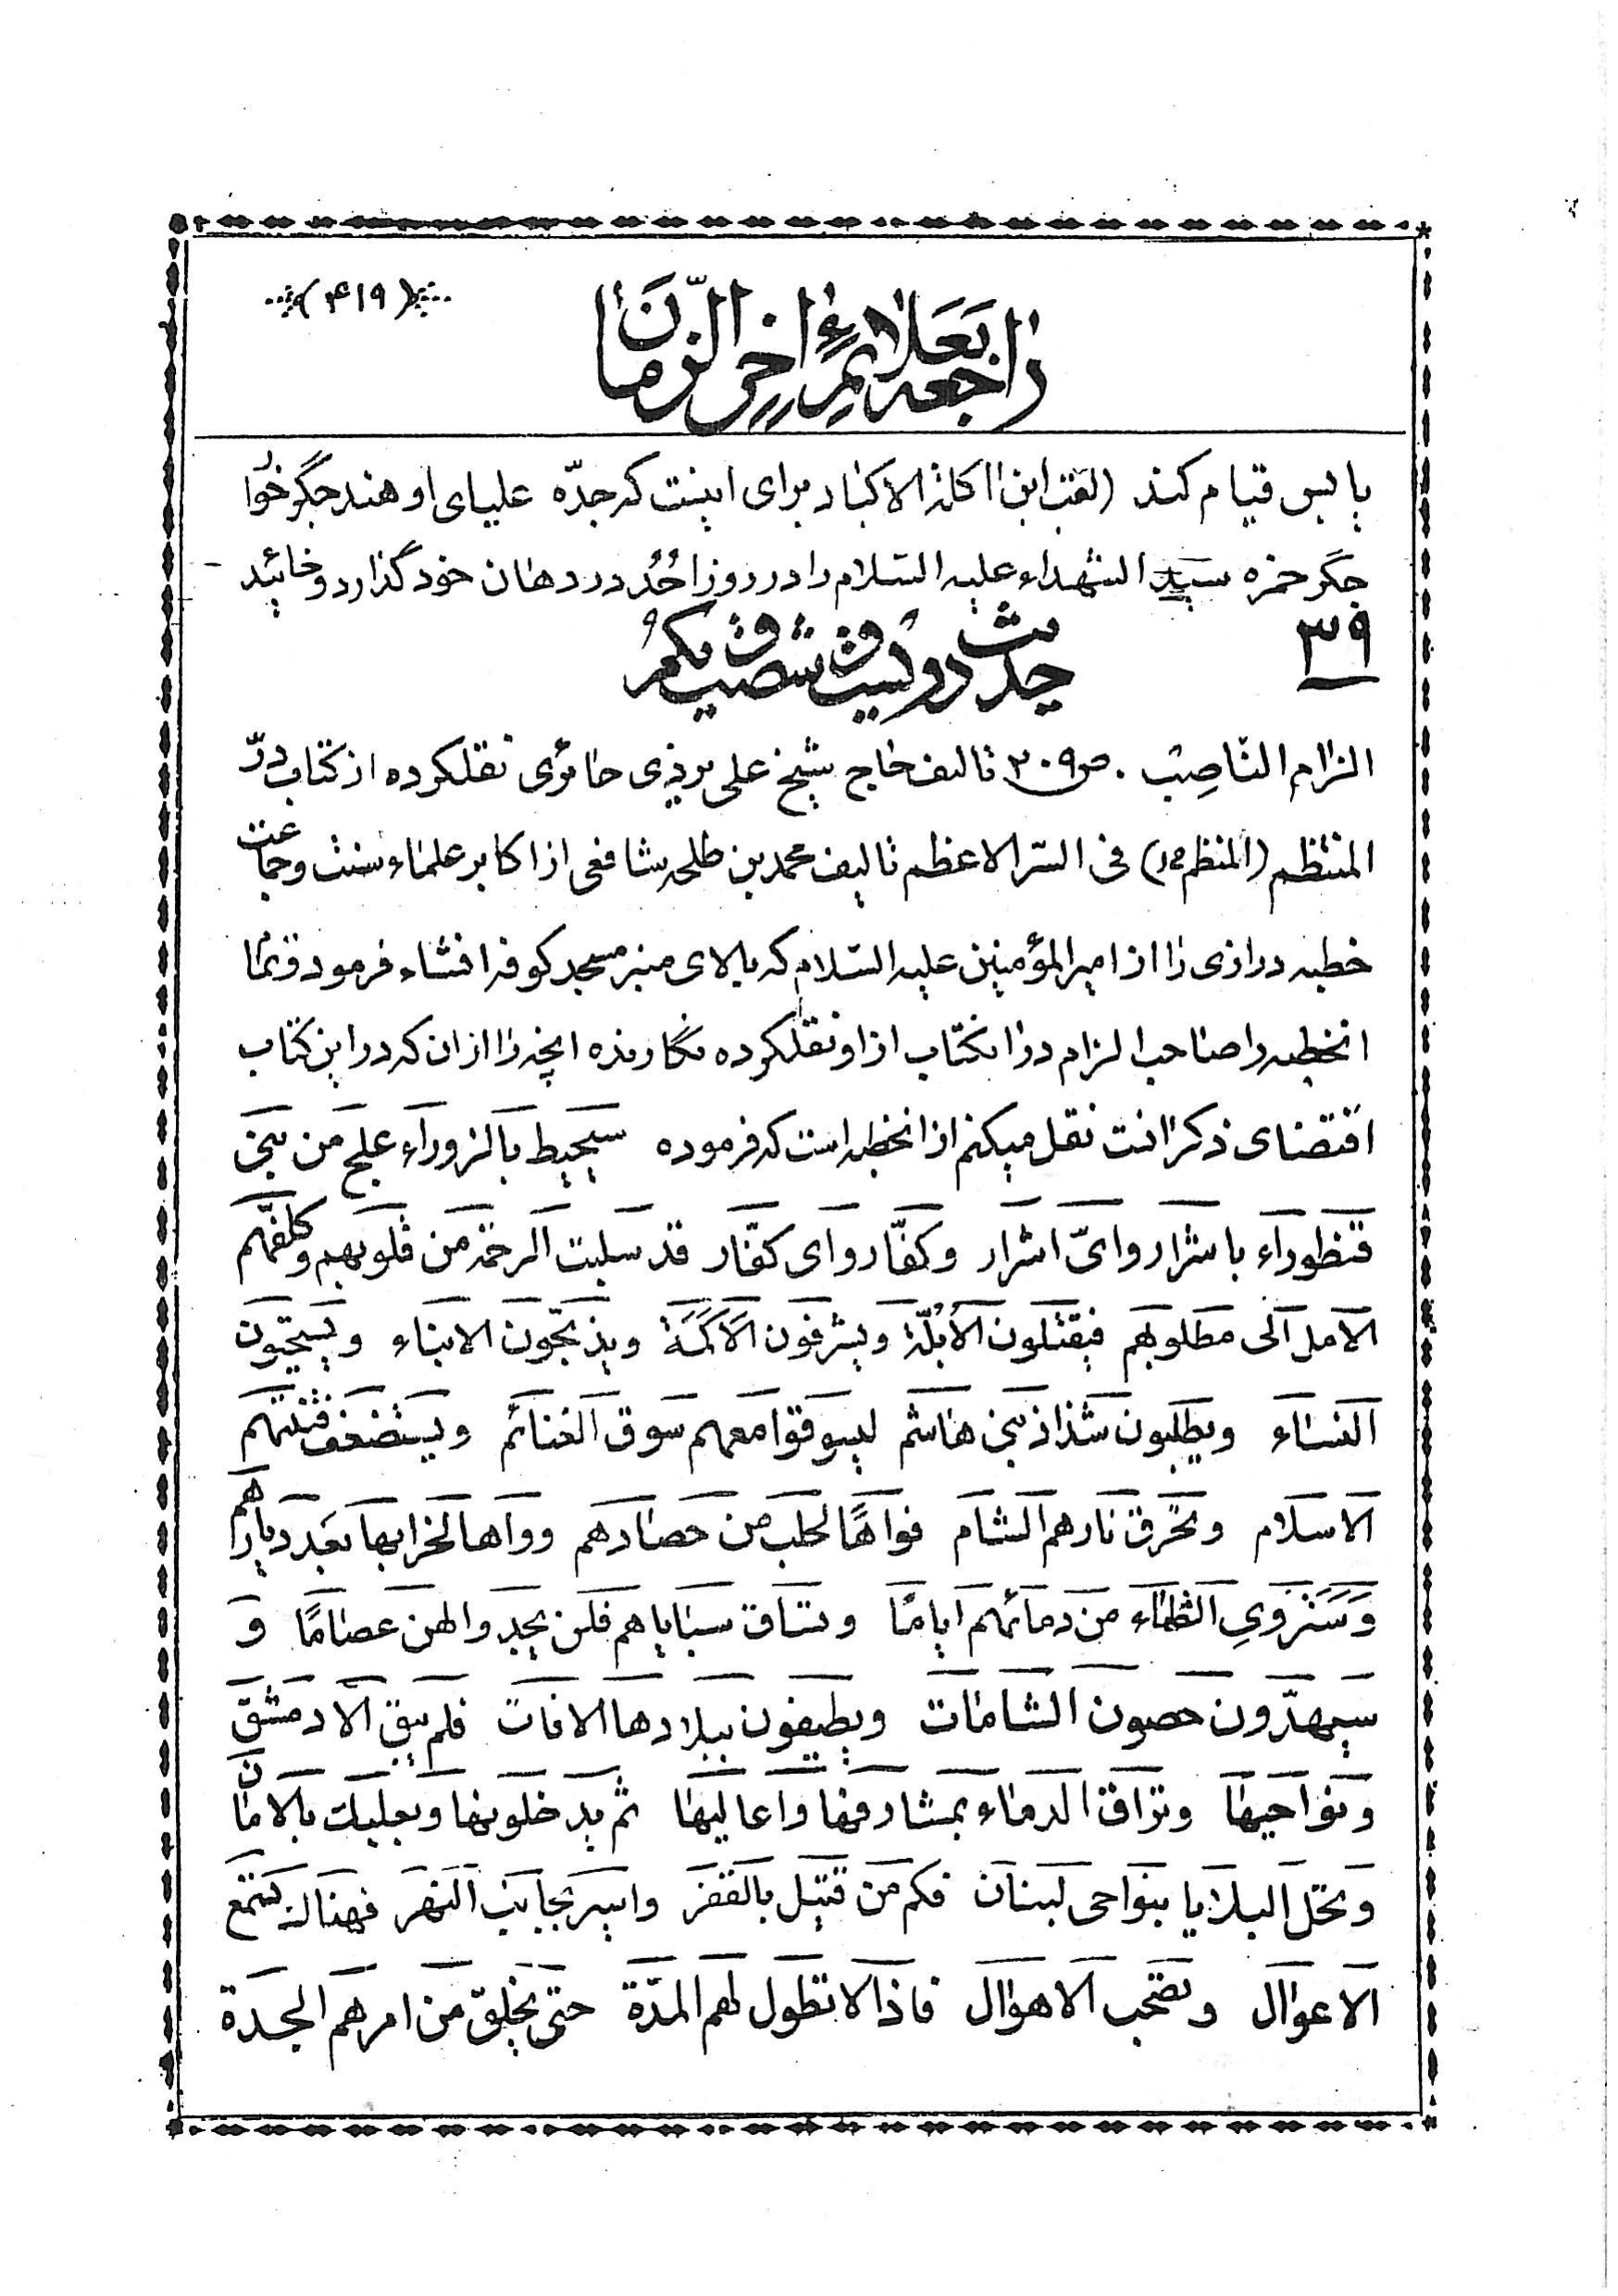 (۴۱۹)
راجعه بعلائم اخر الزمان
یابس قیام کند (لقب ابن اکلة الاکباد برای اینست که جدّه علیای او هند جگر خوا
جگر حمزه سید الشهداء علیه السلام را در روز اُحُد در دهان خود گذارد و خائید
۳۹
حدیث دویست و شصت و یکم
الزام الناصب . ص ۲۰۹ تالیف حاج شیخ علی یزدی حائری نقلکرده از کتاب درّ
المنتظم (المنظم) فی السّر الاعظم تالیف محمد بن طلحه شافعی از اکابر علماء سنت و جماعت
خطبه درازی را از امیر المؤمنین علیه السّلام که بالای منبر مسجد کوفه انشاء فرمود و تما
انخطبه را صاحب الزام در انکتاب از او نقلکرده نگارنده انچه را از ان که در این کتاب
اقتضای ذکر انست نقل میکنم از انخطبه است که فرموده سیحیط بالزوراء علج من بنی
قنطوراء باشرار وایّ اشرار وکفّار وای کفّار قد سلبت الرحمة من قلوبهم وکلفهم
الامل الی مطلوبهم فیقتلون الأبُلّة ویشرفون الأکمَة ویذبحّون الابناء ویستحیون
النساء ویطلبون شذاذ بنی هاشم لیسوقوا معهم سوق الغنائم ویستضعف فتنتهم
الاسلام وتحرق نارهم الشام فواهًا لحلب من حصارهم وواها لخرابها بعد دیارهم
وَسَتروِی الظلماء من دمائهم ایامًا وتساق سبایاهم فلن یجدوا لهن عصامًا و
سیهدّون حصون الشامات ویطیفون ببلادها الافات فلم یبق الا دمشق
ونواحیها وتراق الدماء بمشارفها واعالیها ثم یدخلونها وبعلبک بالامان
وتحل البلایا بنواحی لبنان فکم من قتیل بالقفر واسیر بجانب النهر فهنالک تسمع
الاعوال وتصحب الاهوال فاذا لا تطول لهم المدّة حتی یخلق من امرهم الجدة